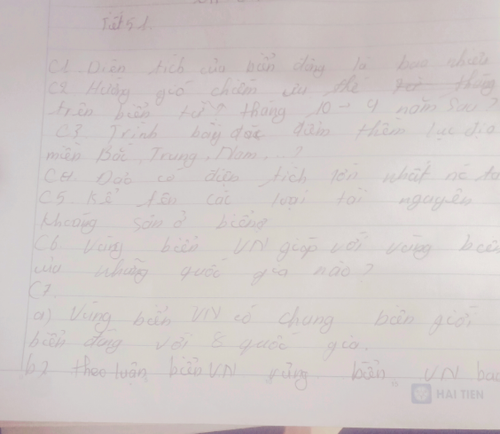 Tiết 51.
C1 Diện tích của biển đông là bao nhiêu
C2 Hướng gió chiếm ưu thế tháng
trên biển từ tháng 10 → 4 năm sau?
C3 Trình bày đặc điểm thềm lục địa
miền Bắc, Trung, Nam...?
C4 Đảo có diện tích lớn nhất nc ta
C5 Kể tên các loại tài nguyên
khoáng sản ở biển
C6 Vùng biển VN giáp với vùng biển
của những quốc gia nào?
C7
a) Vùng biển VN có chung biên giới
biển đông với 8 quốc gia.
b) biển VN vùng biển VN bao
HAI TIEN